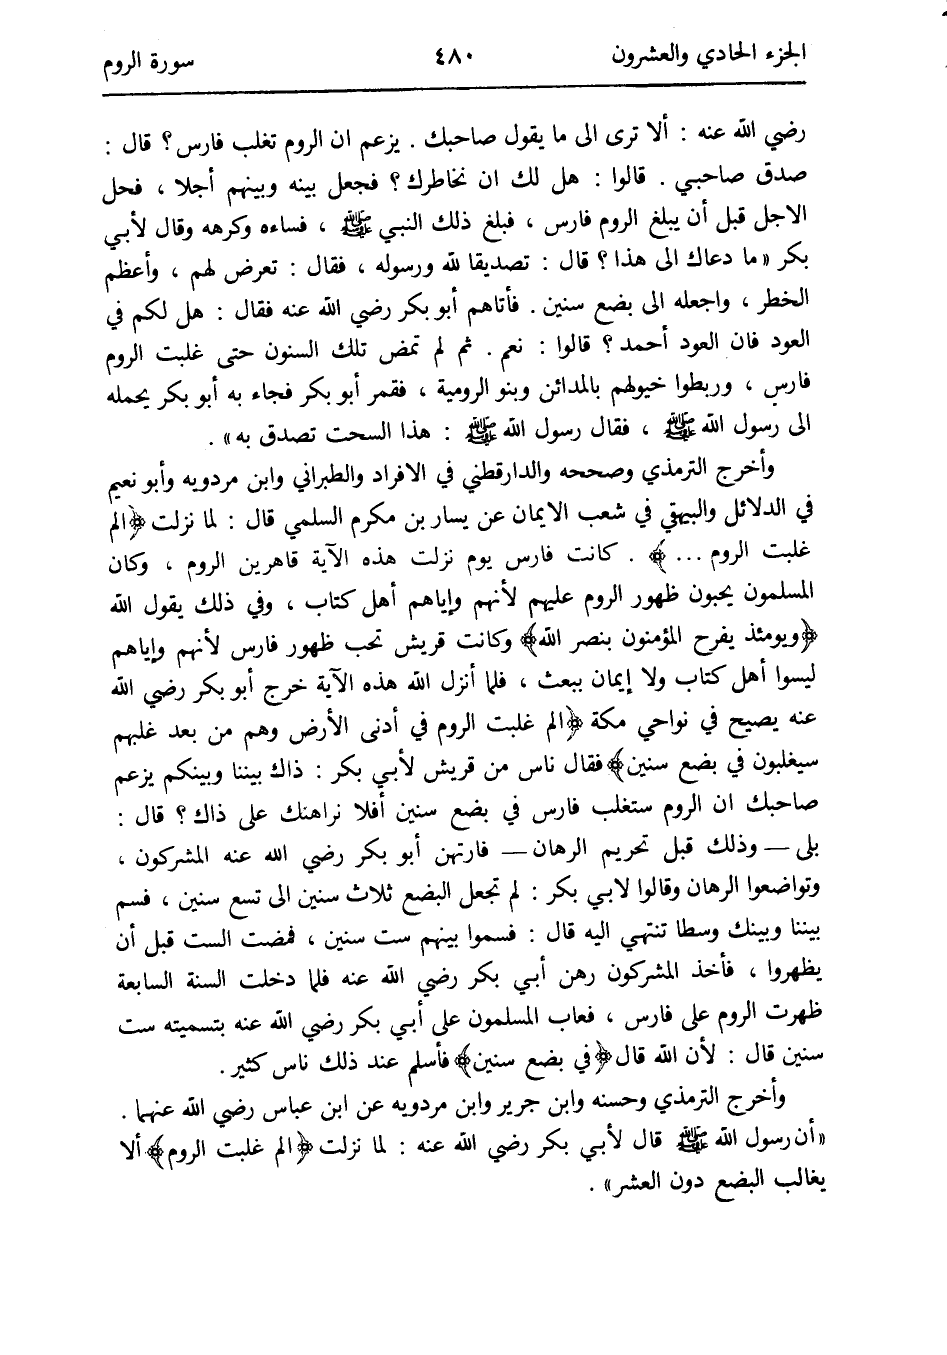 الجزء الحادي والعشرون ٤٨٠ سورة الروم
رضي الله عنه : ألا ترى الى ما يقول صاحبك . يزعم ان الروم تغلب فارس ؟ قال :
صدق صاحبي . قالوا : هل لك ان نخاطرك ؟ فجعل بينه وبينهم أجلا ، فحل
الاجل قبل أن يبلغ الروم فارس ، فبلغ ذلك النبي ﷺ ، فساءه وكرهه وقال لأبي
بكر «ما دعاك الى هذا ؟ قال : تصديقا لله ورسوله ، فقال : تعرض لهم ، وأعظم
الخطر ، واجعله الى بضع سنين . فأتاهم أبو بكر رضي الله عنه فقال : هل لكم في
العود فان العود أحمد ؟ قالوا : نعم . ثم لم تمض تلك السنون حتى غلبت الروم
فارس ، وربطوا خيولهم بالمدائن وبنو الرومية ، فقمر أبو بكر فجاء به أبو بكر يحمله
الى رسول الله ﷺ ، فقال رسول الله ﷺ : هذا السحت تصدق به» .
وأخرج الترمذي وصححه والدارقطني في الافراد والطبراني وابن مردويه وأبو نعيم
في الدلائل والبيهقي في شعب الايمان عن يسار بن مكرم السلمي قال : لما نزلت ﴿الم
غلبت الروم ...﴾ . كانت فارس يوم نزلت هذه الآية قاهرين الروم ، وكان
المسلمون يحبون ظهور الروم عليهم لأنهم وإياهم أهل كتاب ، وفي ذلك يقول الله
﴿ويومئذ يفرح المؤمنون بنصر الله﴾ وكانت قريش تحب ظهور فارس لأنهم وإياهم
ليسوا أهل كتاب ولا إيمان ببعث ، فلما أنزل الله هذه الآية خرج أبو بكر رضي الله
عنه يصيح في نواحي مكة ﴿الم غلبت الروم في أدنى الأرض وهم من بعد غلبهم
سيغلبون في بضع سنين﴾ فقال ناس من قريش لأبي بكر : ذاك بيننا وبينكم يزعم
صاحبك ان الروم ستغلب فارس في بضع سنين أفلا نراهنك على ذاك ؟ قال :
بلى — وذلك قبل تحريم الرهان — فارتهن أبو بكر رضي الله عنه المشركون ،
وتواضعوا الرهان وقالوا لابي بكر : لم تجعل البضع ثلاث سنين الى تسع سنين ، فسم
بيننا وبينك وسطا تنتهي اليه قال : فسموا بينهم ست سنين ، فمضت الست قبل أن
يظهروا ، فأخذ المشركون رهن أبي بكر رضي الله عنه فلما دخلت السنة السابعة
ظهرت الروم على فارس ، فعاب المسلمون على أبي بكر رضي الله عنه بتسميته ست
سنين قال : لأن الله قال ﴿في بضع سنين﴾ فأسلم عند ذلك ناس كثير .
وأخرج الترمذي وحسنه وابن جرير وابن مردويه عن ابن عباس رضي الله عنهما .
«أن رسول الله ﷺ قال لأبي بكر رضي الله عنه : لما نزلت ﴿الم غلبت الروم﴾ ألا
يغالب البضع دون العشر» .